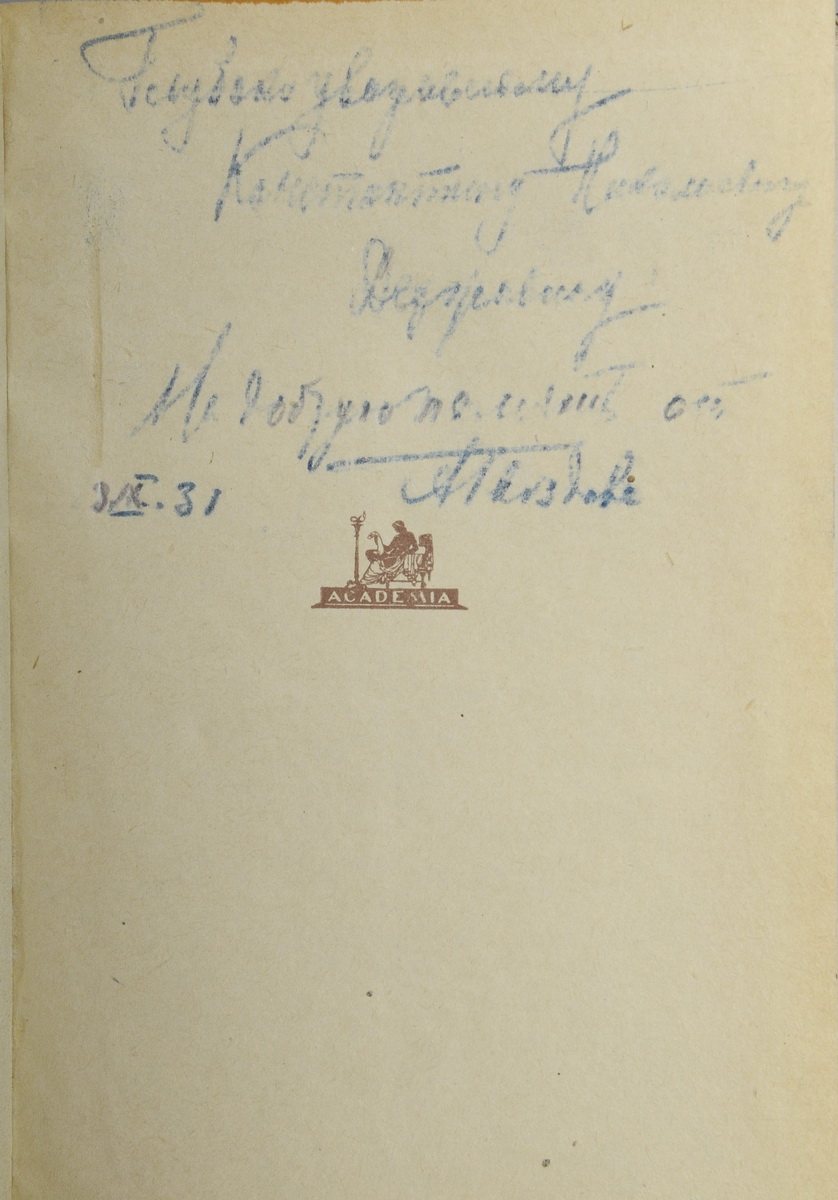 Глубокоуважаемому
Константину Николаевичу
На добрую память от
А Гвоздева
3/IX.31
ACADEMIA